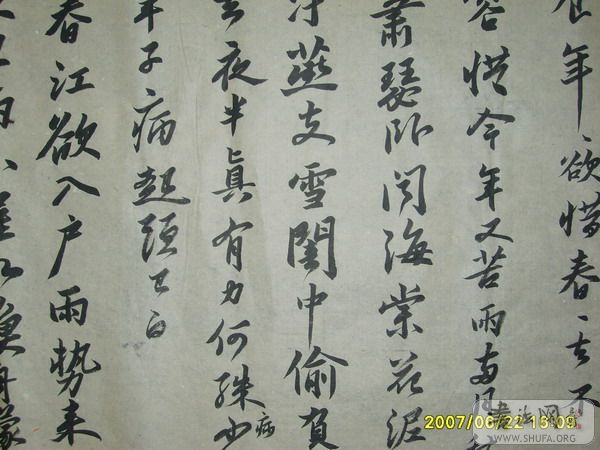 年、欲惜春、去不
容惜今年又苦雨兩月
蕭瑟卧聞海棠花泥
汙燕支雪闇中偷負
去夜半眞有力何殊少
病
年子病起頭已白
春江欲入戶雨勢來
小屋如漁舟濛
2007/06/22 13:09
書法网
WWW.SHUFA.ORG